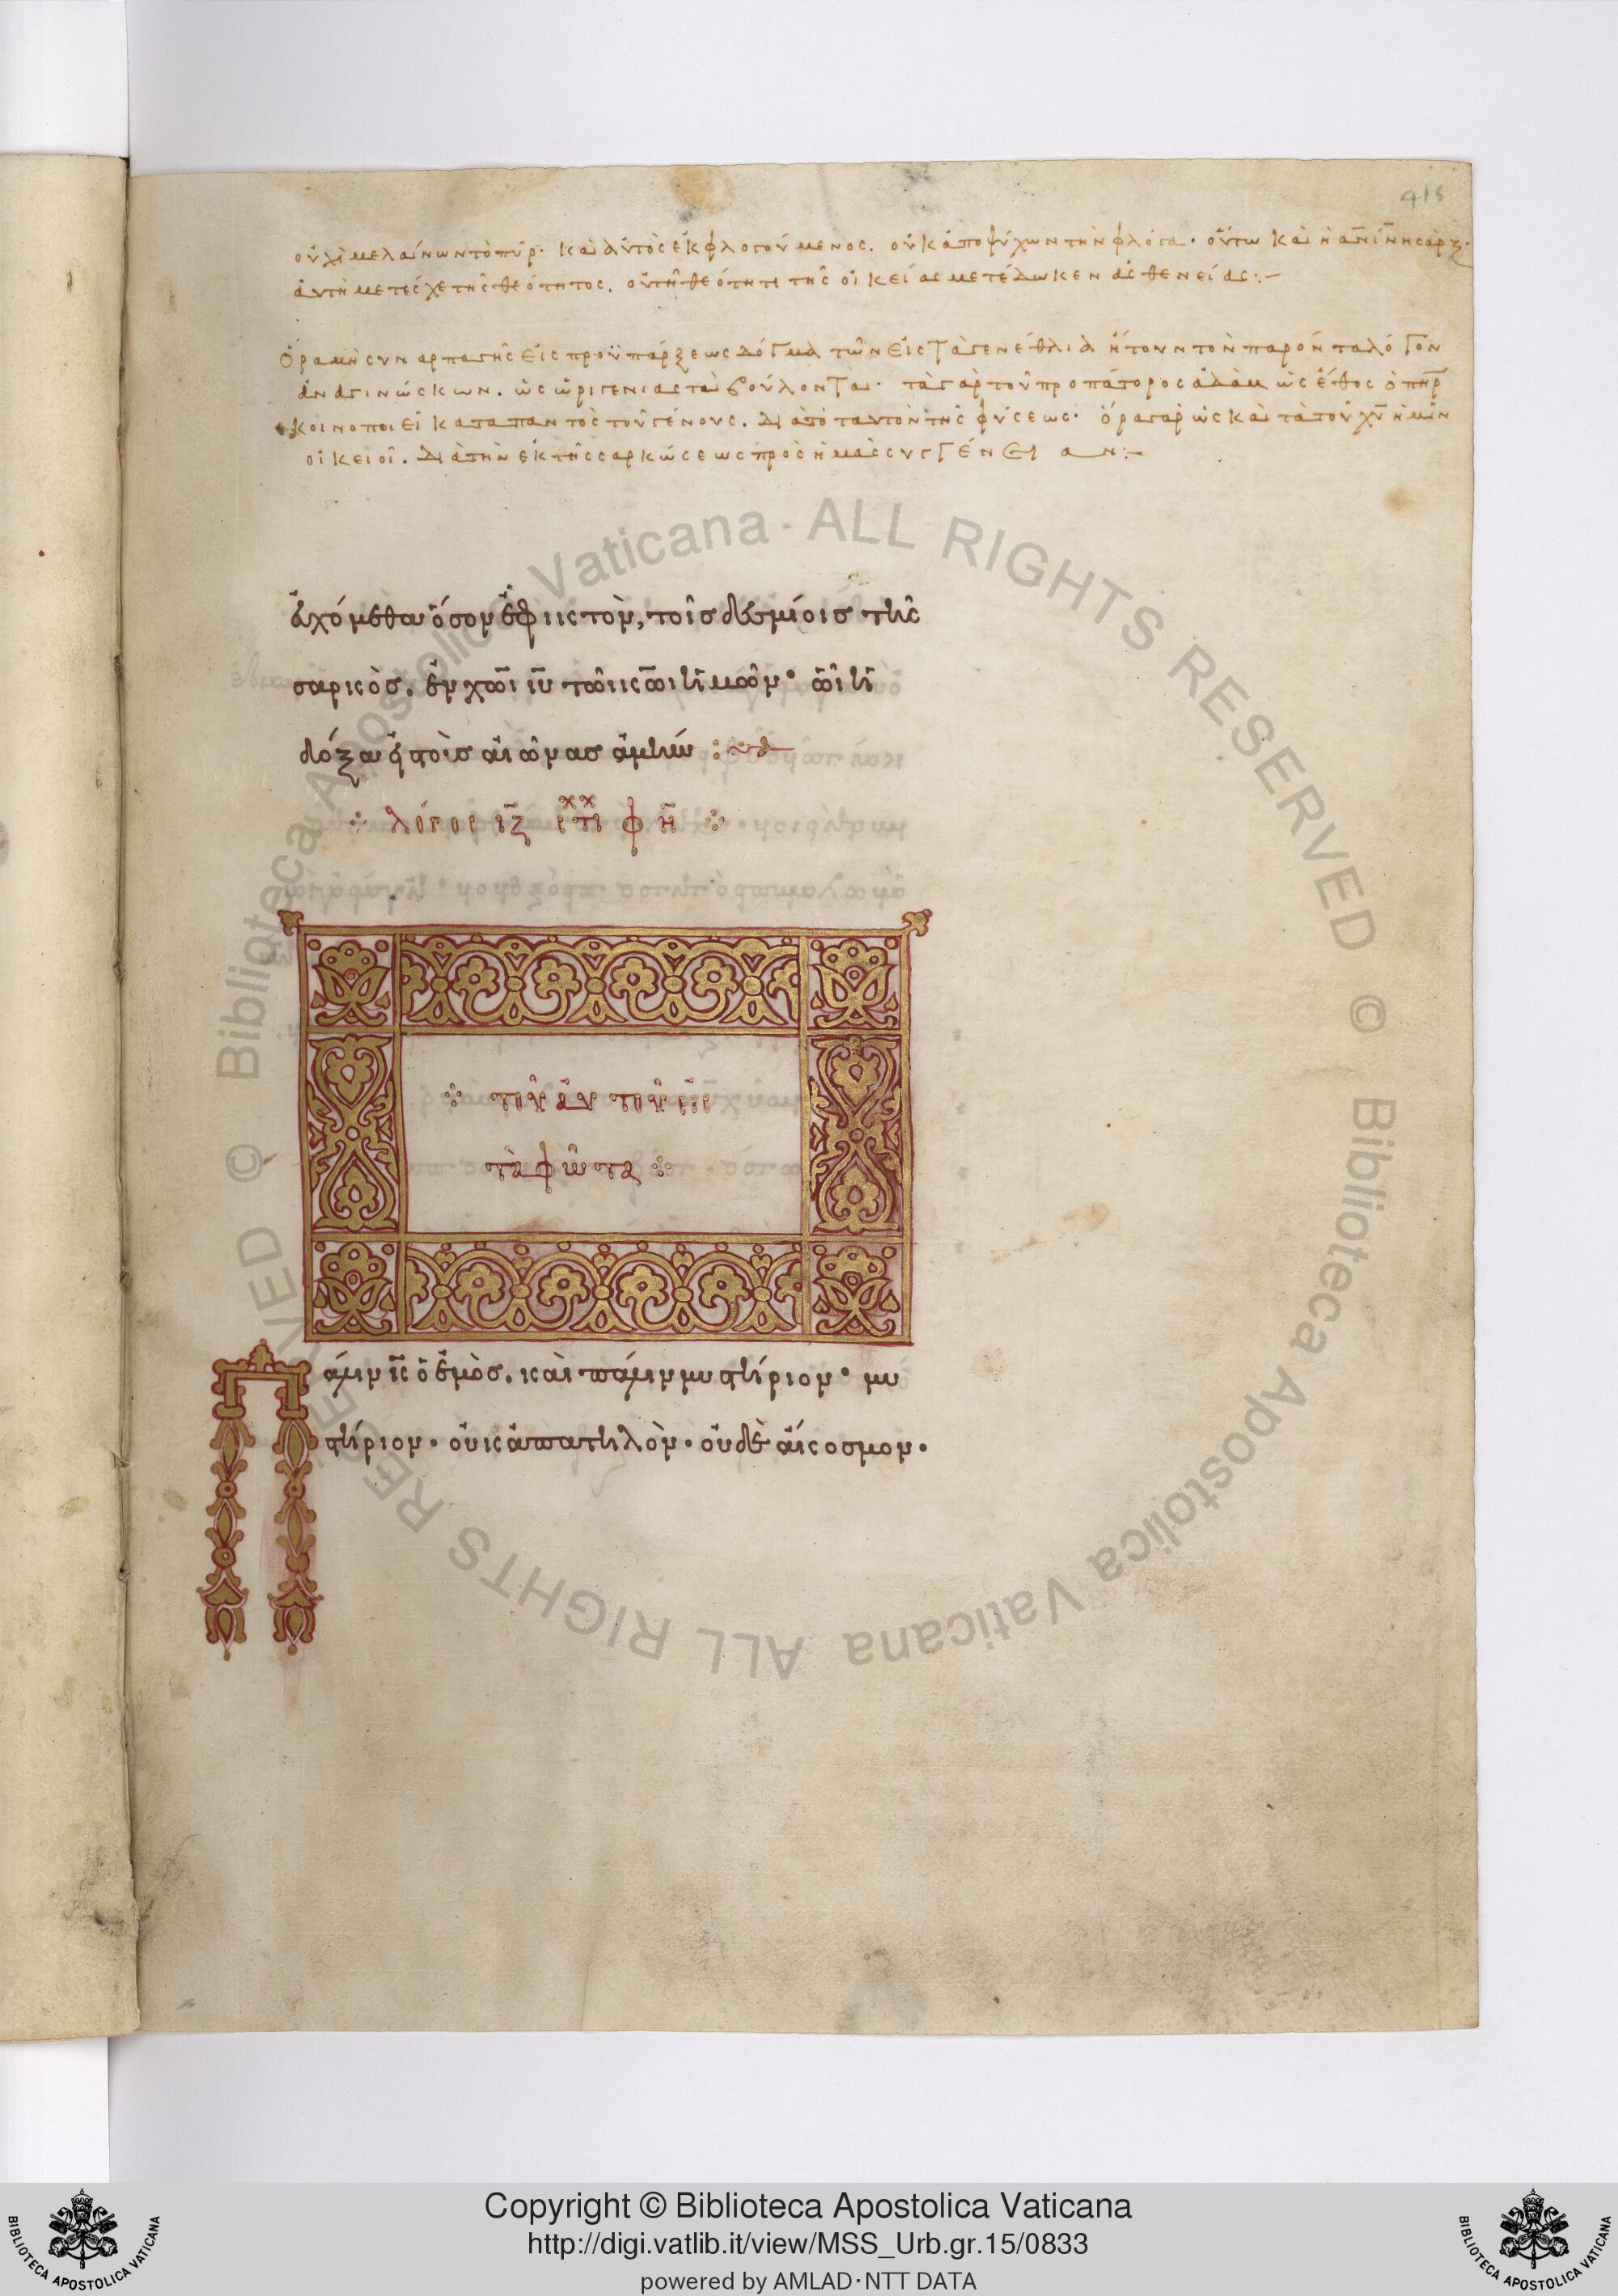 415
οὐχὶ μελαίνων τὸ πῦρ· καὶ αὐτὸς ἐκφλογούμενος. οὐκ ἀποψύχων τὴν φλόγα· οὕτω καὶ ἡ ἀν̅ι̅ν̅η σὰρξ·
αὐτὴ μετέσχε τῆς θεότητος. οὐ τῇ θεότητι τῆς οἰκείας μετέδωκεν ἀσθενείας:–
Ὅρα μὴ συναρπαγῇς εἰς προϋπάρξεως δόγμα τῶν εἰς τὰ γενέθλια ἤγουν τὸν παρόντα λόγον
ἀναγινώσκων. ὡς ὠριγενιασταὶ βούλονται· τὰ γὰρ τοῦ προπάτορος ἀδὰμ ὡς ἔθος ὁ π̅η̅ρ
κοινοποιεῖ κατα παντὸς τοῦ γένους. διὰ τὸ ταυτὸν τῆς φύσεως· ὅρα γὰρ ὡς καὶ τὰ τοῦ χ̅υ̅ ἡμῖν
οἰκειοῖ. διὰ τὴν ἐκ τῆς σαρκώσεως πρὸς ἡμᾶς συγγένειαν:–
ἀχόμεθα ὅσον ἐφικτὸν, τοῖς δεσμίοις τῆς
σαρκὸς. ἐν χ̅ω̅ι ι̅υ̅ τῶι κ̅ω̅ι ἡμῶν· ὧι ἡ
δόξα εἰς τοὺς αἰῶνας ἀμήν :~
λόγος ι̅ζ̅ στι φ η̅
τοῦ αὐτοῦ εἰς
τὰ φῶτα
Πάλιν ι̅ς̅ ὁ ἐμὸς. καὶ πάλιν μυστήριον· μυ
στήριον· οὐκ ἀπατηλὸν· οὐδὲ ἄκοσμον·
© Biblioteca Apostolica Vaticana · ALL RIGHTS RESERVED © Biblioteca Apostolica Vaticana ALL RIGHTS RESERVED
Copyright © Biblioteca Apostolica Vaticana
http://digi.vatlib.it/view/MSS_Urb.gr.15/0833
powered by AMLAD·NTT DATA
BIBLIOTECA APOSTOLICA VATICANA
BIBLIOTECA APOSTOLICA VATICANA